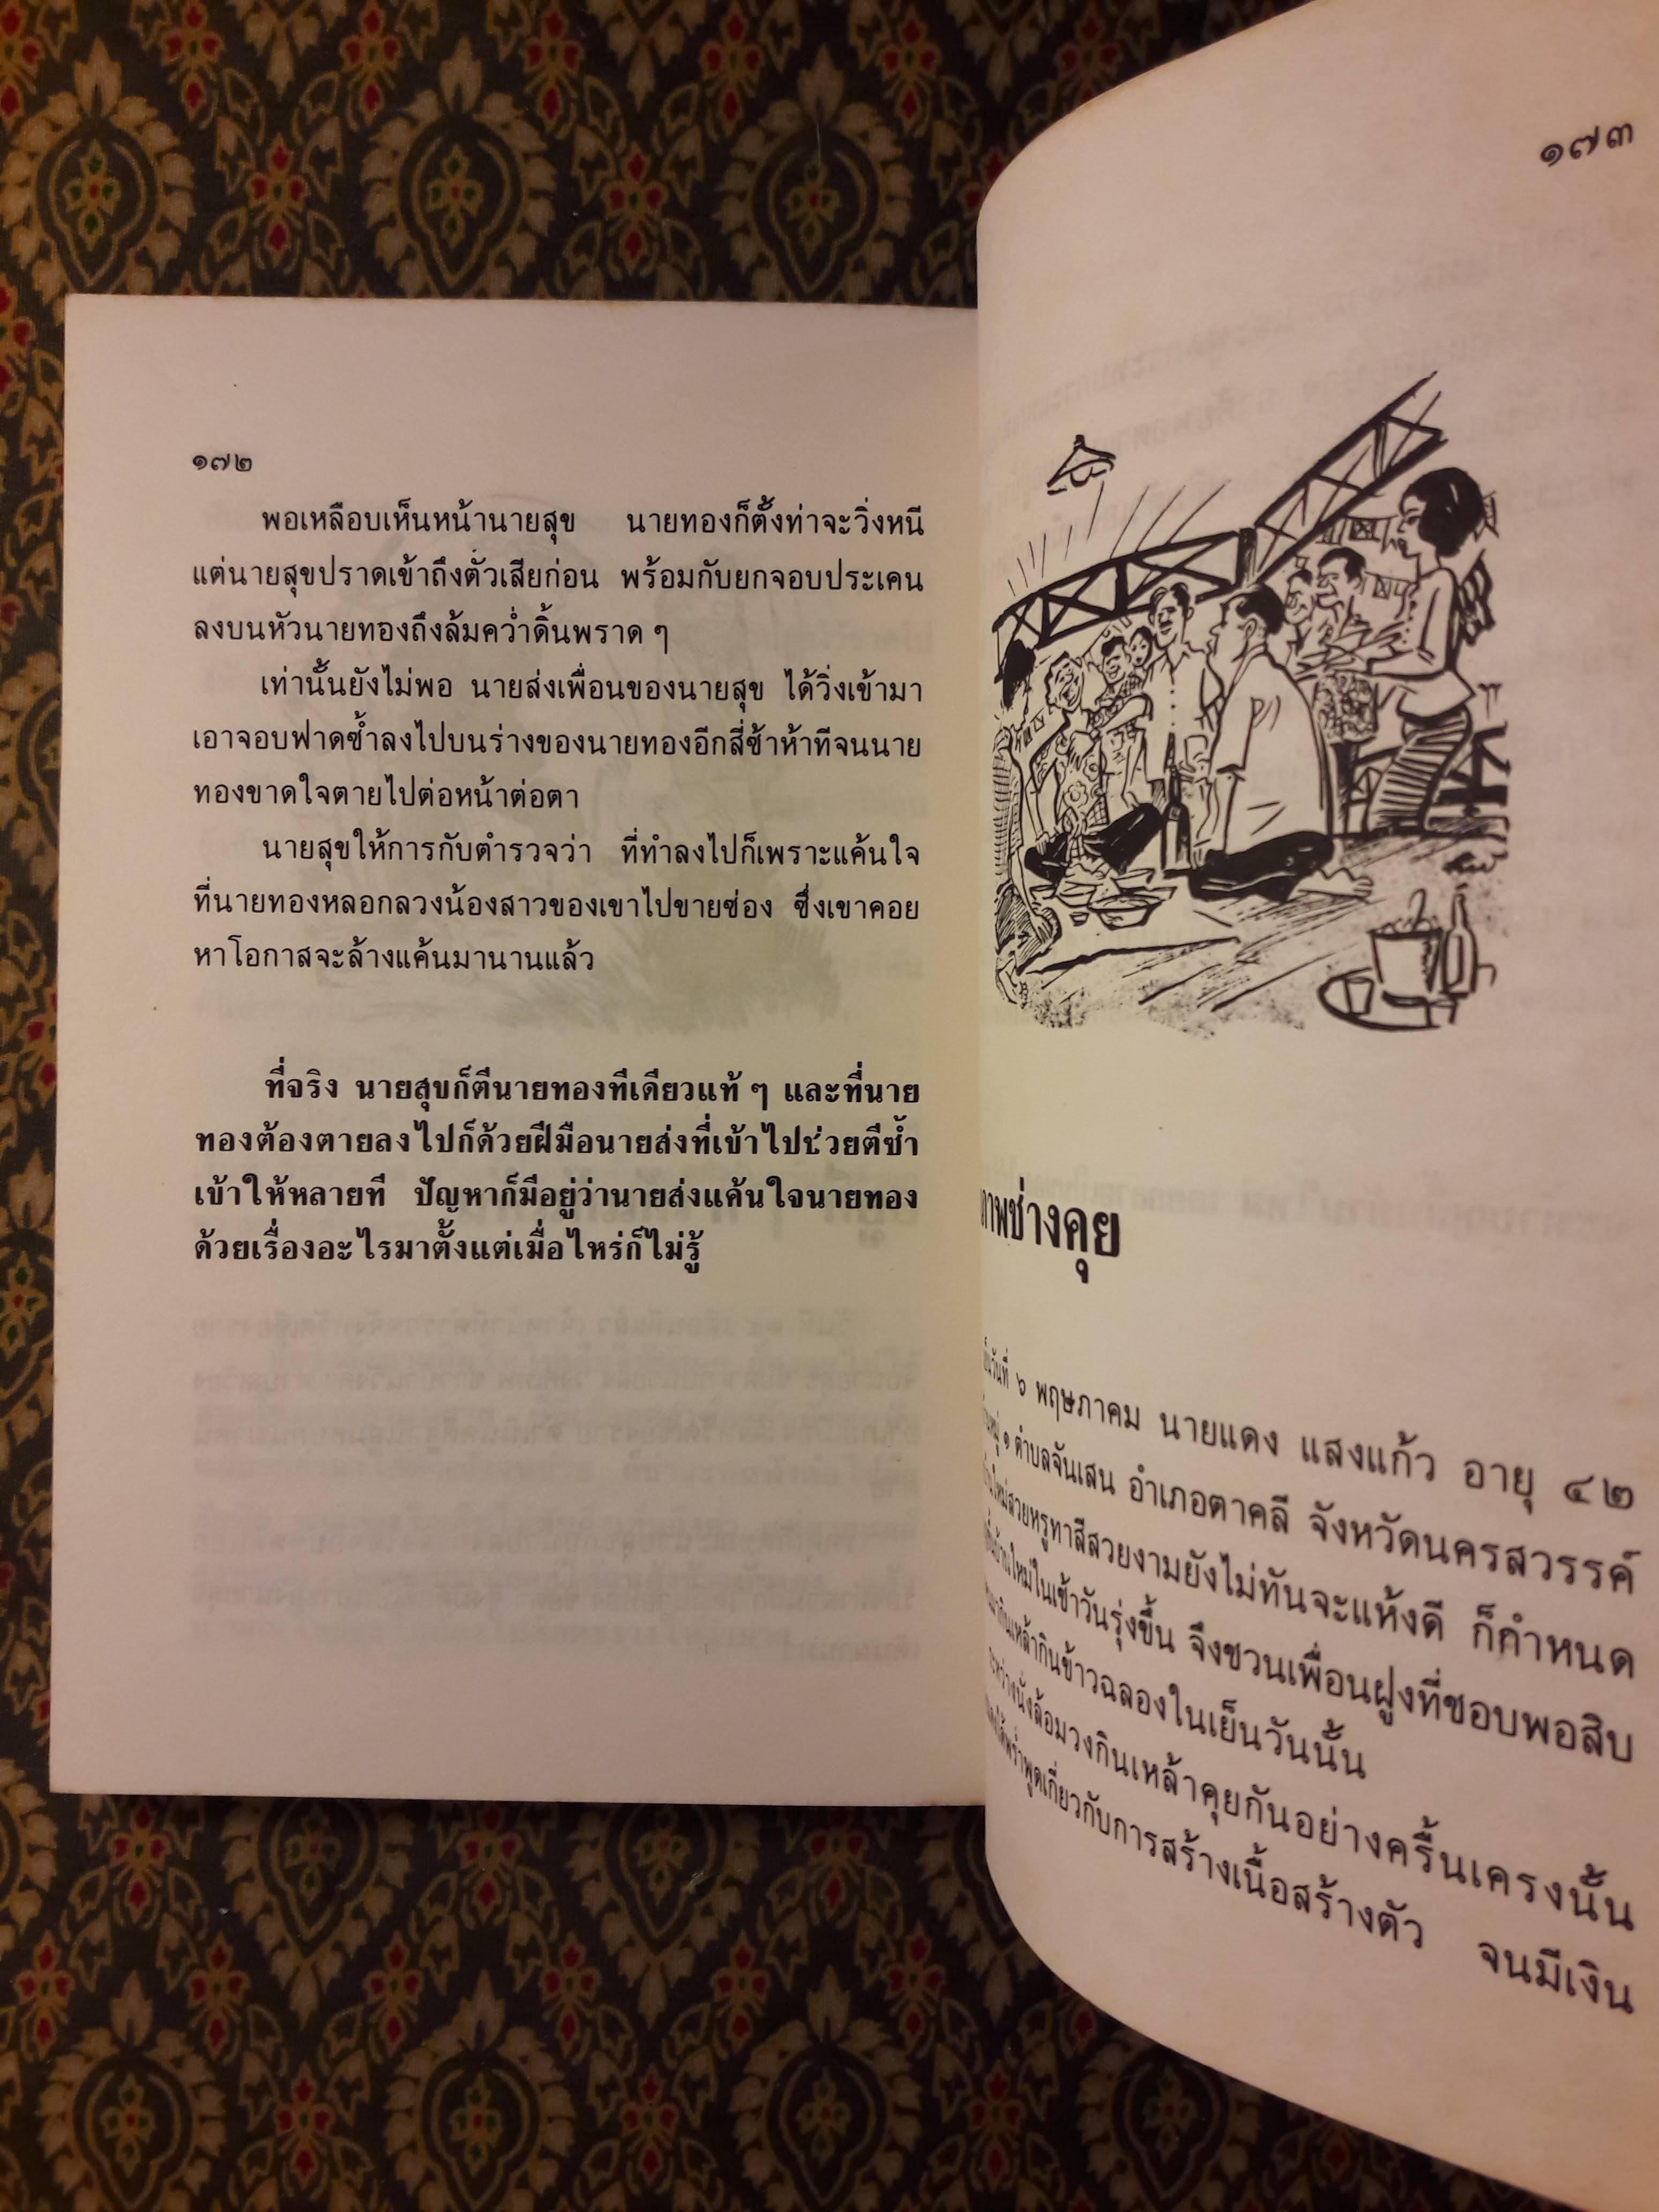 ๑๗๒
พอเหลือบเห็นหน้านายสุข นายทองก็ตั้งท่าจะวิ่งหนี
แต่นายสุขปราดเข้าถึงตั่วเสียก่อน พร้อมกับยกจอบประเคน
ลงบนหัวนายทองถึงล้มคว่ำดิ้นพราด ๆ
เท่านั้นยังไม่พอ นายส่งเพื่อนของนายสุข ได้วิ่งเข้ามา
เอาจอบฟาดซ้ำลงไปบนร่างของนายทองอีกสี่ซ้าห้าทีจนนาย
ทองขาดใจตายไปต่อหน้าต่อตา
นายสุขให้การกับตำรวจว่า ที่ทำลงไปก็เพราะแค้นใจ
ที่นายทองหลอกลวงน้องสาวของเขาไปขายซ่อง ซึ่งเขาคอย
หาโอกาสจะล้างแค้นมานานแล้ว
ที่จริง นายสุขก็ตีนายทองทีเดียวแท้ ๆ และที่นาย
ทองต้องตายลงไปก็ด้วยฝีมือนายส่งที่เข้าไปช่วยตีซ้ำ
เข้าให้หลายที ปัญหาก็มีอยู่ว่านายส่งแค้นใจนายทอง
ด้วยเรื่องอะไรมาตั้งแต่เมื่อไหร่ก็ไม่รู้
๑๗๓
ภาพช่างคุย
วันที่ ๖ พฤษภาคม นายแดง แสงแก้ว อายุ ๔๒
หมู่ ๑ ตำบลจันเสน อำเภอตาคลี จังหวัดนครสวรรค์
ใหม่สวยหรูทาสีสวยงามยังไม่ทันจะแห้งดี ก็กำหนด
ขึ้นบ้านใหม่ในเช้าวันรุ่งขึ้น จึงชวนเพื่อนฝูงที่ชอบพอสิบ
มากินเหล้ากินข้าวฉลองในเย็นวันนั้น
ระหว่างนั่งล้อมวงกินเหล้าคุยกันอย่างครื้นเครงนั้น
ได้พร่ำพูดเกี่ยวกับการสร้างเนื้อสร้างตัว จนมีเงิน